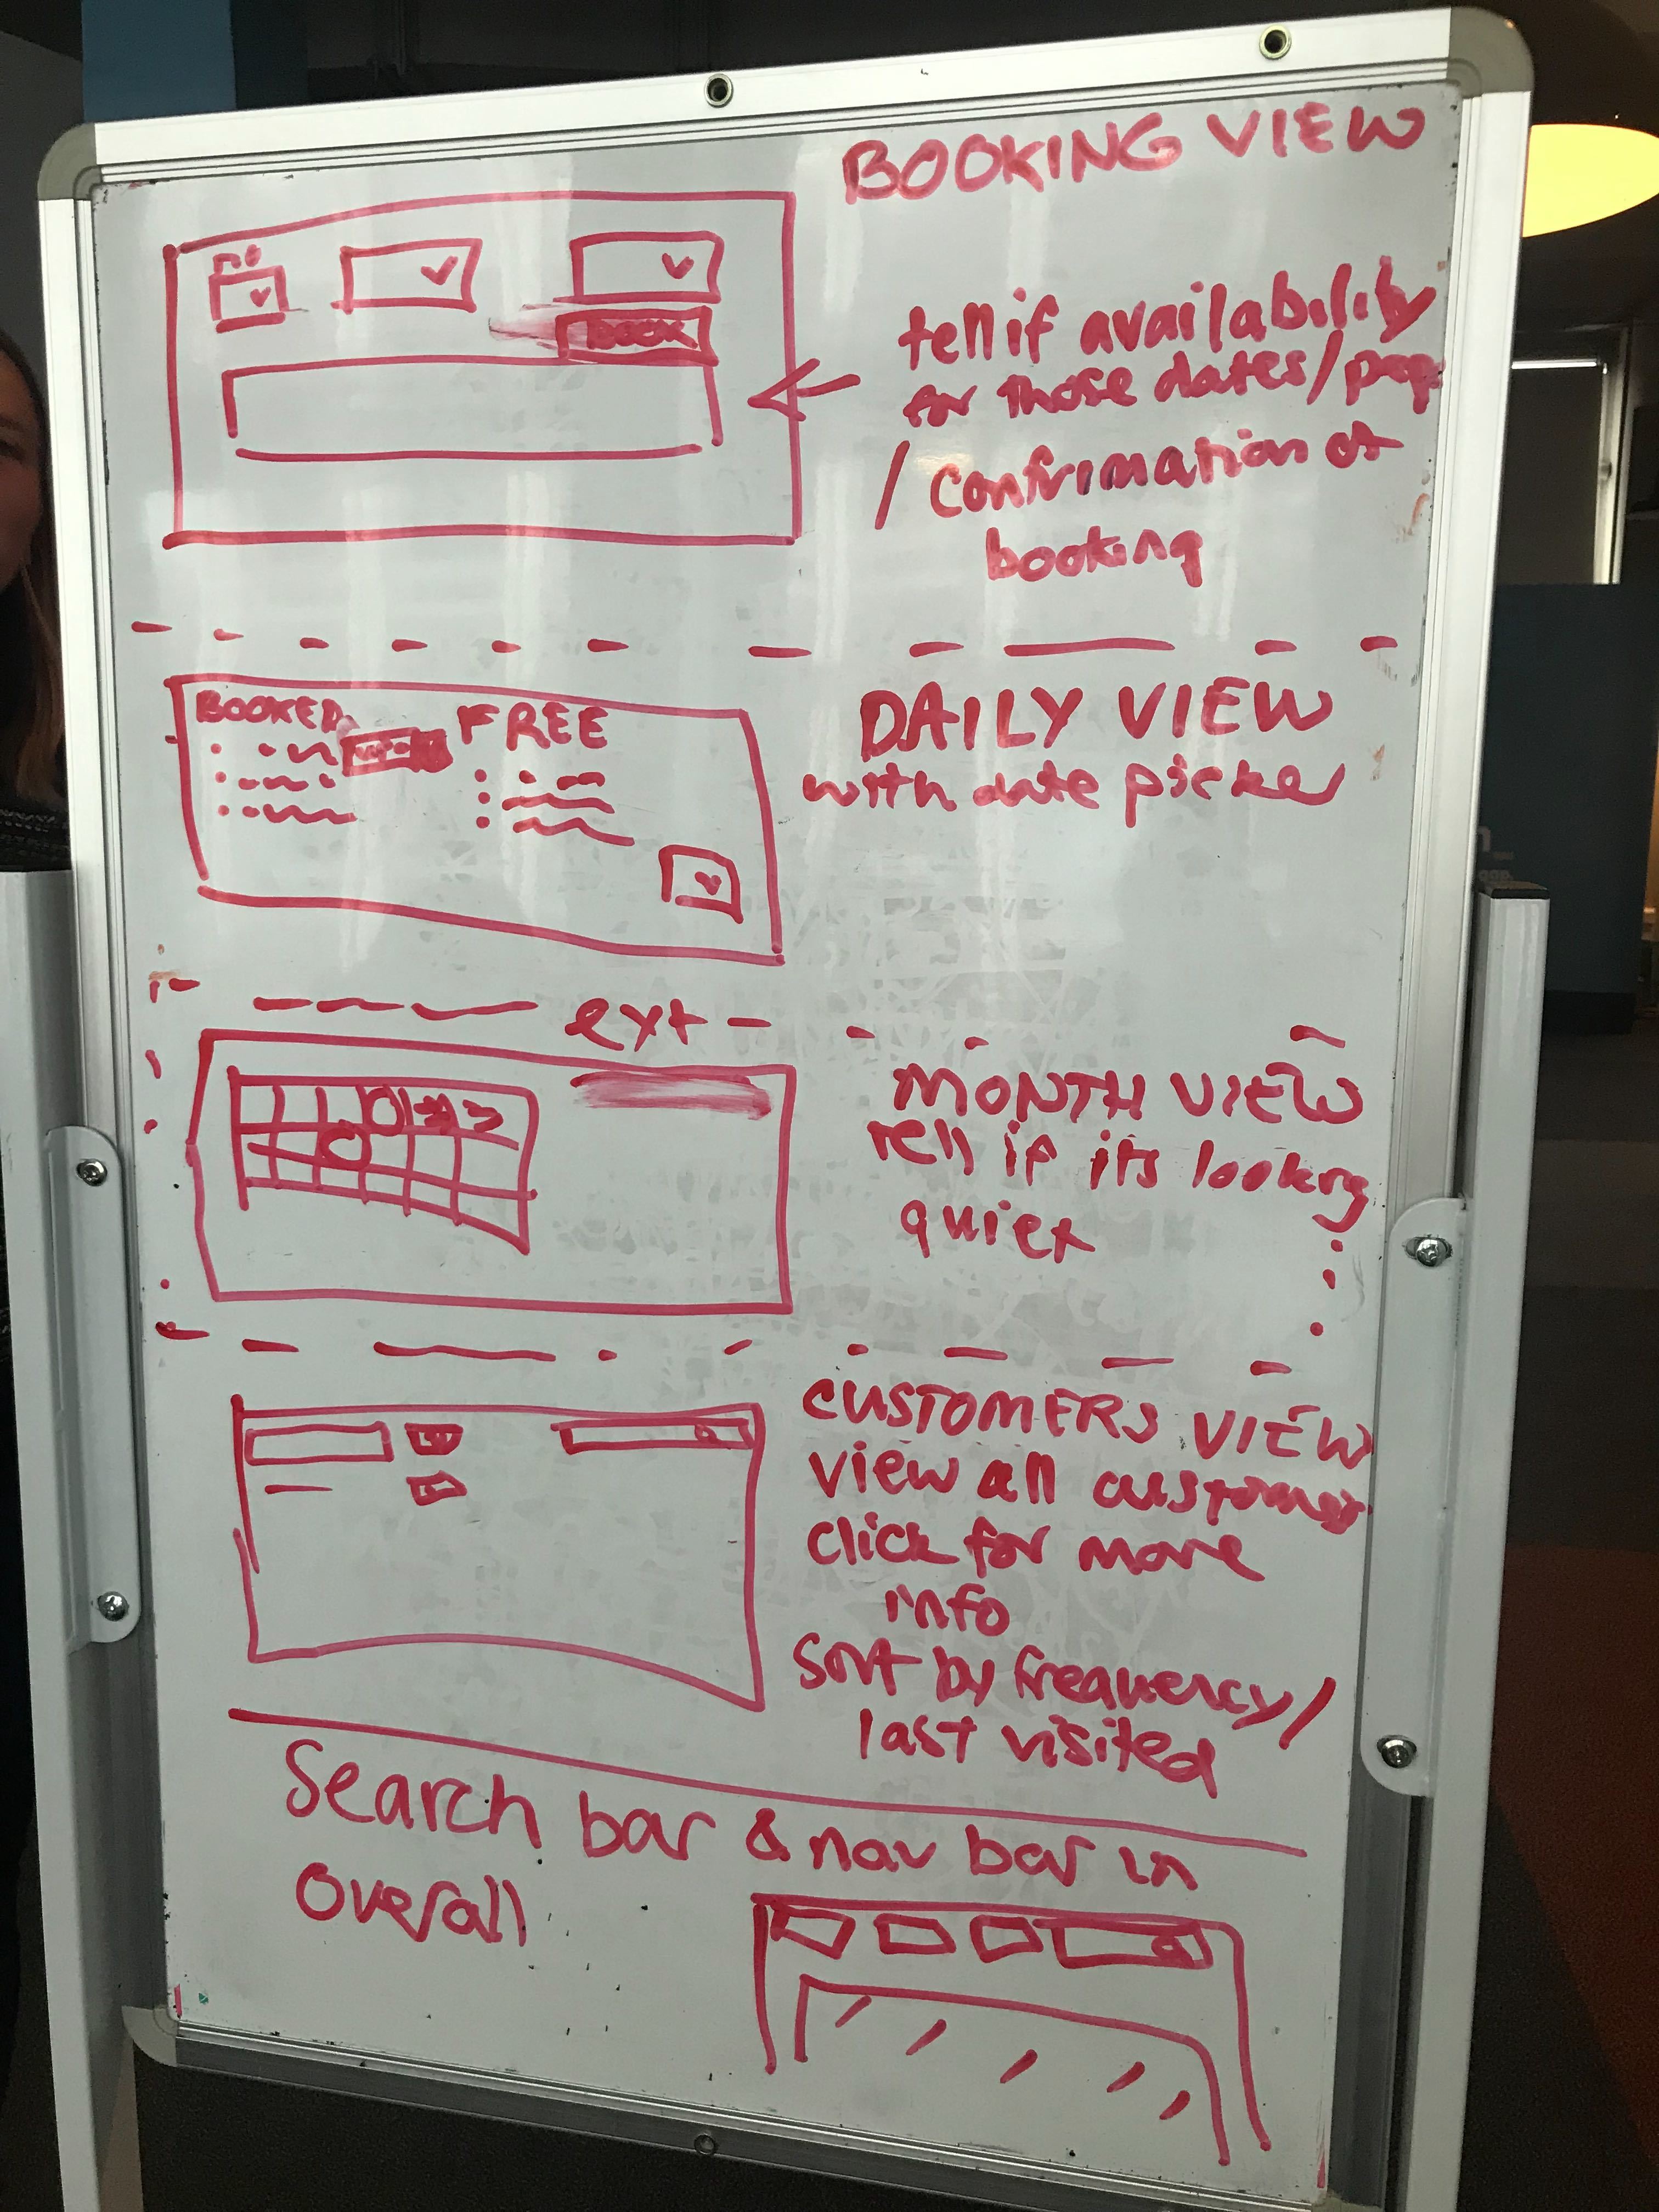 BOOKING VIEW
BOOK
tell if availability
for those dates/
/ confirmation of
booking
BOOKED
FREE
DAILY VIEW
with date picker
ext
MONTH VIEW
tell if its looking
quiet
CUSTOMERS VIEW
view all customer
click for more
info
Sort by frequency/
last visited
Search bar & nav bar in
Overall